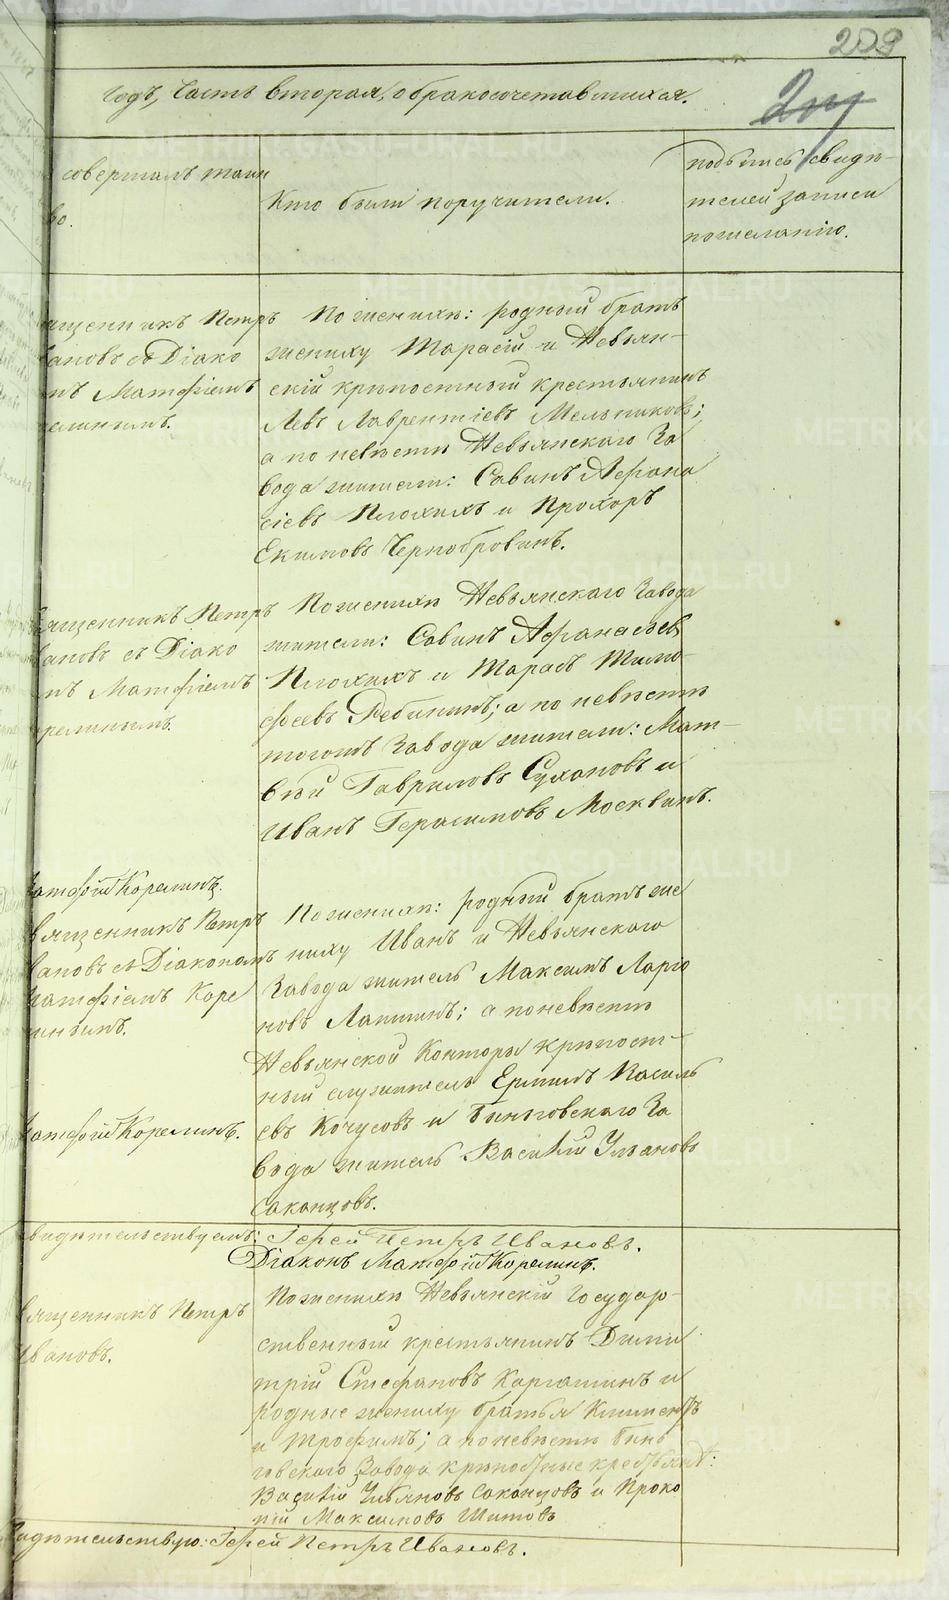 209
Годъ, Часть вторая, о бракосочетавшихся.
совершалъ таин
во.
Кто были поручители.
Подпись свидѣ-
телей записи
по желанію.
ященникъ Петръ
вановъ съ Діако
нъ Матфіемъ
елинымъ.
По женихѣ: родный братъ
жениху Тарасій и Невьян-
скій крѣпостный крестьянинъ
Левъ Лаврентіевъ Мельниковъ;
а по невѣстѣ Невьянскаго За
вода жители: Савинъ Афана
сіевъ Плохихъ и Прохоръ
Екимовъ Чернобровинъ.
вященникъ Петръ
вановъ съ Діако
нъ Матфіемъ
релинымъ.
По женихѣ Невьянскаго Завода
жители: Савинъ Афанасьевъ
Плохихъ и Тарасъ Тимо-
феевъ Рябининъ; а по невѣстѣ
тогожъ Завода жители: Мат-
вѣй Гавриловъ Сухановъ и
Иванъ Герасимовъ Москвинъ.
атфій Корелинъ.
вященникъ Петръ
вановъ съ Діакономъ
атфіемъ Коре
инымъ.
По женихѣ: родный братъ же
ниху Иванъ и Невьянскаго
Завода житель Максимъ Ларіо
новъ Лапшинъ; а по невѣстѣ
Невьянской Конторы крѣпост-
ный служитель Ермилъ Василь
евъ Кочусовъ и Быньговскаго За
вода житель Василій Ульяновъ
Саканцовъ.
атфій Корелинъ.
видѣтельствуемъ: Іерей Петръ Ивановъ.
Діаконъ Матфій Корелинъ.
вященникъ Петръ
Ивановъ.
По женихѣ Невьянскій Государ-
ственный крестьянинъ Дими
трій Стефановъ Каргашинъ и
родные жениху братья Климентъ
и Трофимъ; а по невѣстѣ Бынь
говскаго Завода крѣпостные крестьяне:
Василій Ульяновъ Саканцовъ и Проко
пій Максимовъ Шитовъ
видѣтельствую: Іерей Петръ Ивановъ.
METRIKI.GASO-URAL.RU